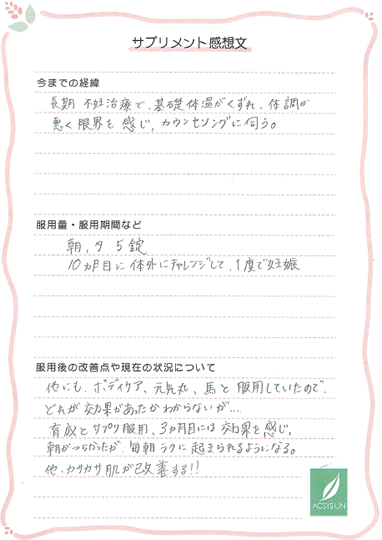 サプリメント感想文
今までの経緯
長期 不妊治療で、基礎体温がくずれ、体調が
悪く限界を感じ、カウンセリングに伺う。
服用量・服用期間など
朝、夕 5錠
10ヵ月目に体外にチャレンジして、1度で妊娠
服用後の改善点や現在の状況について
他にも、ボディケア、元気丸、馬と服用していたので、
どれが効果があったかわからないが…
育成とサプリ服用、3ヵ月目には効果を感じ、
朝がつらかったが、毎朝ラクに起きられるようになる。
他、カサカサ肌が改善する!!
ACSYSUN